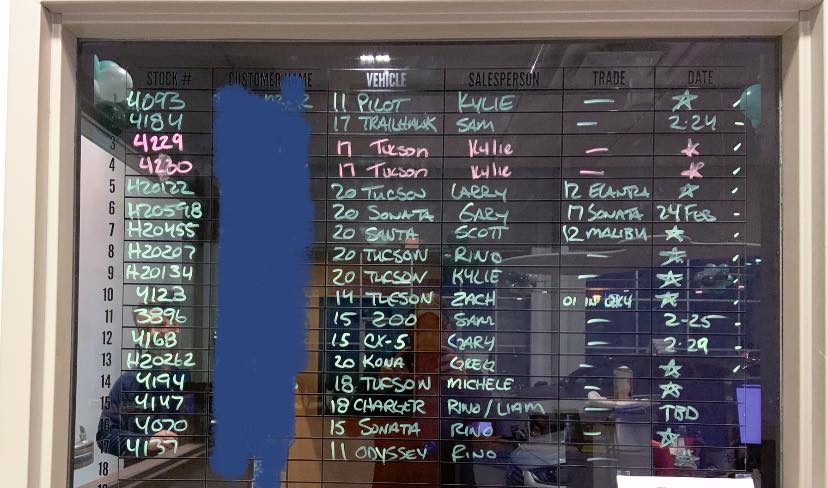 STOCK # CUSTOMER NAME VEHICLE SALESPERSON TRADE DATE
4093 11 PILOT KYLIE —
4184 17 TRAILHAWK SAM — 2-24
3 4229 17 Tucson Kylie —
4 4230 17 Tucson Kylie —
5 H20122 20 TUCSON LARRY 12 ELANTRA
6 H20598 20 SONATA GARY 17 SONATA 24 FEB
7 H20455 20 SANTA SCOTT 12 MALIBU
8 H20207 20 TUCSON RINO —
9 H20134 20 TUCSON KYLIE —
10 4123 14 TUCSON ZACH
11 3896 15 200 SAM — 2-25
12 4168 15 CX-5 GARY — 2-29
13 H20262 20 KONA GREG —
14 4194 18 TUCSON MICHELE —
15 4147 18 CHARGER RINO/LIAM — TBD
4070 15 SONATA RINO —
4137 11 ODYSSEY RINO —
18